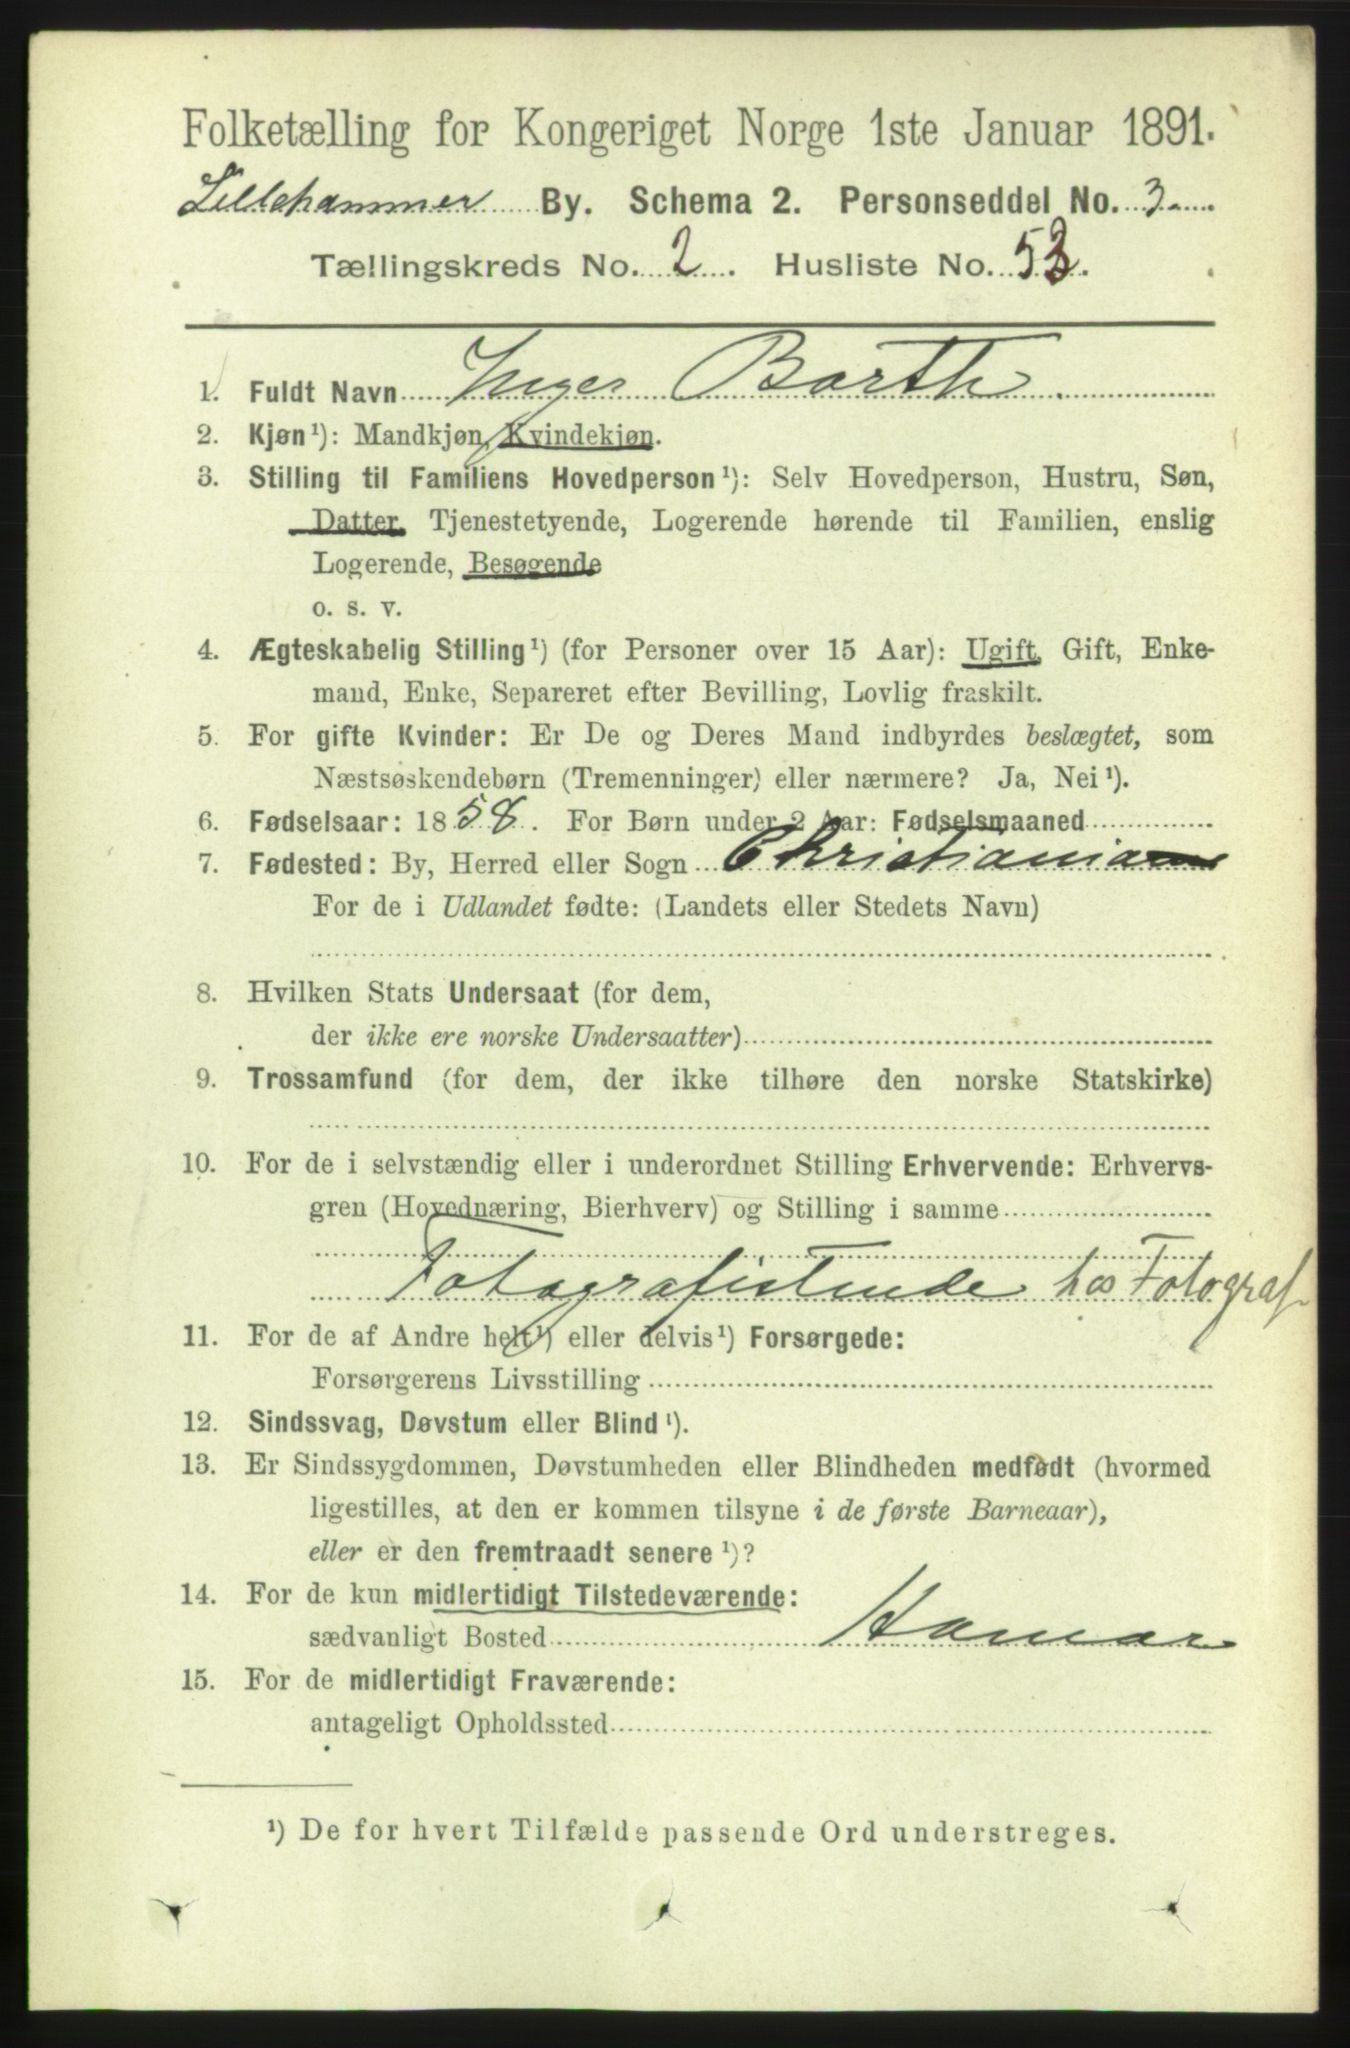 Folketælling for Kongeriget Norge 1ste Januar 1891.
Lillehammer By. Schema 2. Personseddel No. 3
Tællingskreds No. 2. Husliste No. 53.
1. Fuldt Navn Inger Barth
2. Kjøn¹): Mandkjøn, Kvindekjøn.
3. Stilling til Familiens Hovedperson¹): Selv Hovedperson, Hustru, Søn,
Datter, Tjenestetyende, Logerende hørende til Familien, enslig
Logerende, Besøgende
o. s. v.
4. Ægteskabelig Stilling¹) (for Personer over 15 Aar): Ugift, Gift, Enke-
mand, Enke, Separeret efter Bevilling, Lovlig fraskilt.
5. For gifte Kvinder: Er De og Deres Mand indbyrdes beslægtet, som
Næstsøskendebørn (Tremenninger) eller nærmere? Ja, Nei¹).
6. Fødselsaar: 1858. For Børn under 2 Aar: Fødselsmaaned
7. Fødested: By, Herred eller Sogn Christiania
For de i Udlandet fødte: (Landets eller Stedets Navn)
8. Hvilken Stats Undersaat (for dem,
der ikke ere norske Undersaatter)
9. Trossamfund (for dem, der ikke tilhøre den norske Statskirke)
10. For de i selvstændig eller i underordnet Stilling Erhvervende: Erhvervs-
gren (Hovednæring, Bierhverv) og Stilling i samme
Fotografistinde hos Fotograf
11. For de af Andre helt¹) eller delvis¹) Forsørgede:
Forsørgerens Livsstilling
12. Sindssvag, Døvstum eller Blind¹).
13. Er Sindssygdommen, Døvstumheden eller Blindheden medfødt (hvormed
ligestilles, at den er kommen tilsyne i de første Barneaar),
eller er den fremtraadt senere¹)?
14. For de kun midlertidigt Tilstedeværende:
sædvanligt Bosted Hamar
15. For de midlertidigt Fraværende:
antageligt Opholdssted
¹) De for hvert Tilfælde passende Ord understreges.